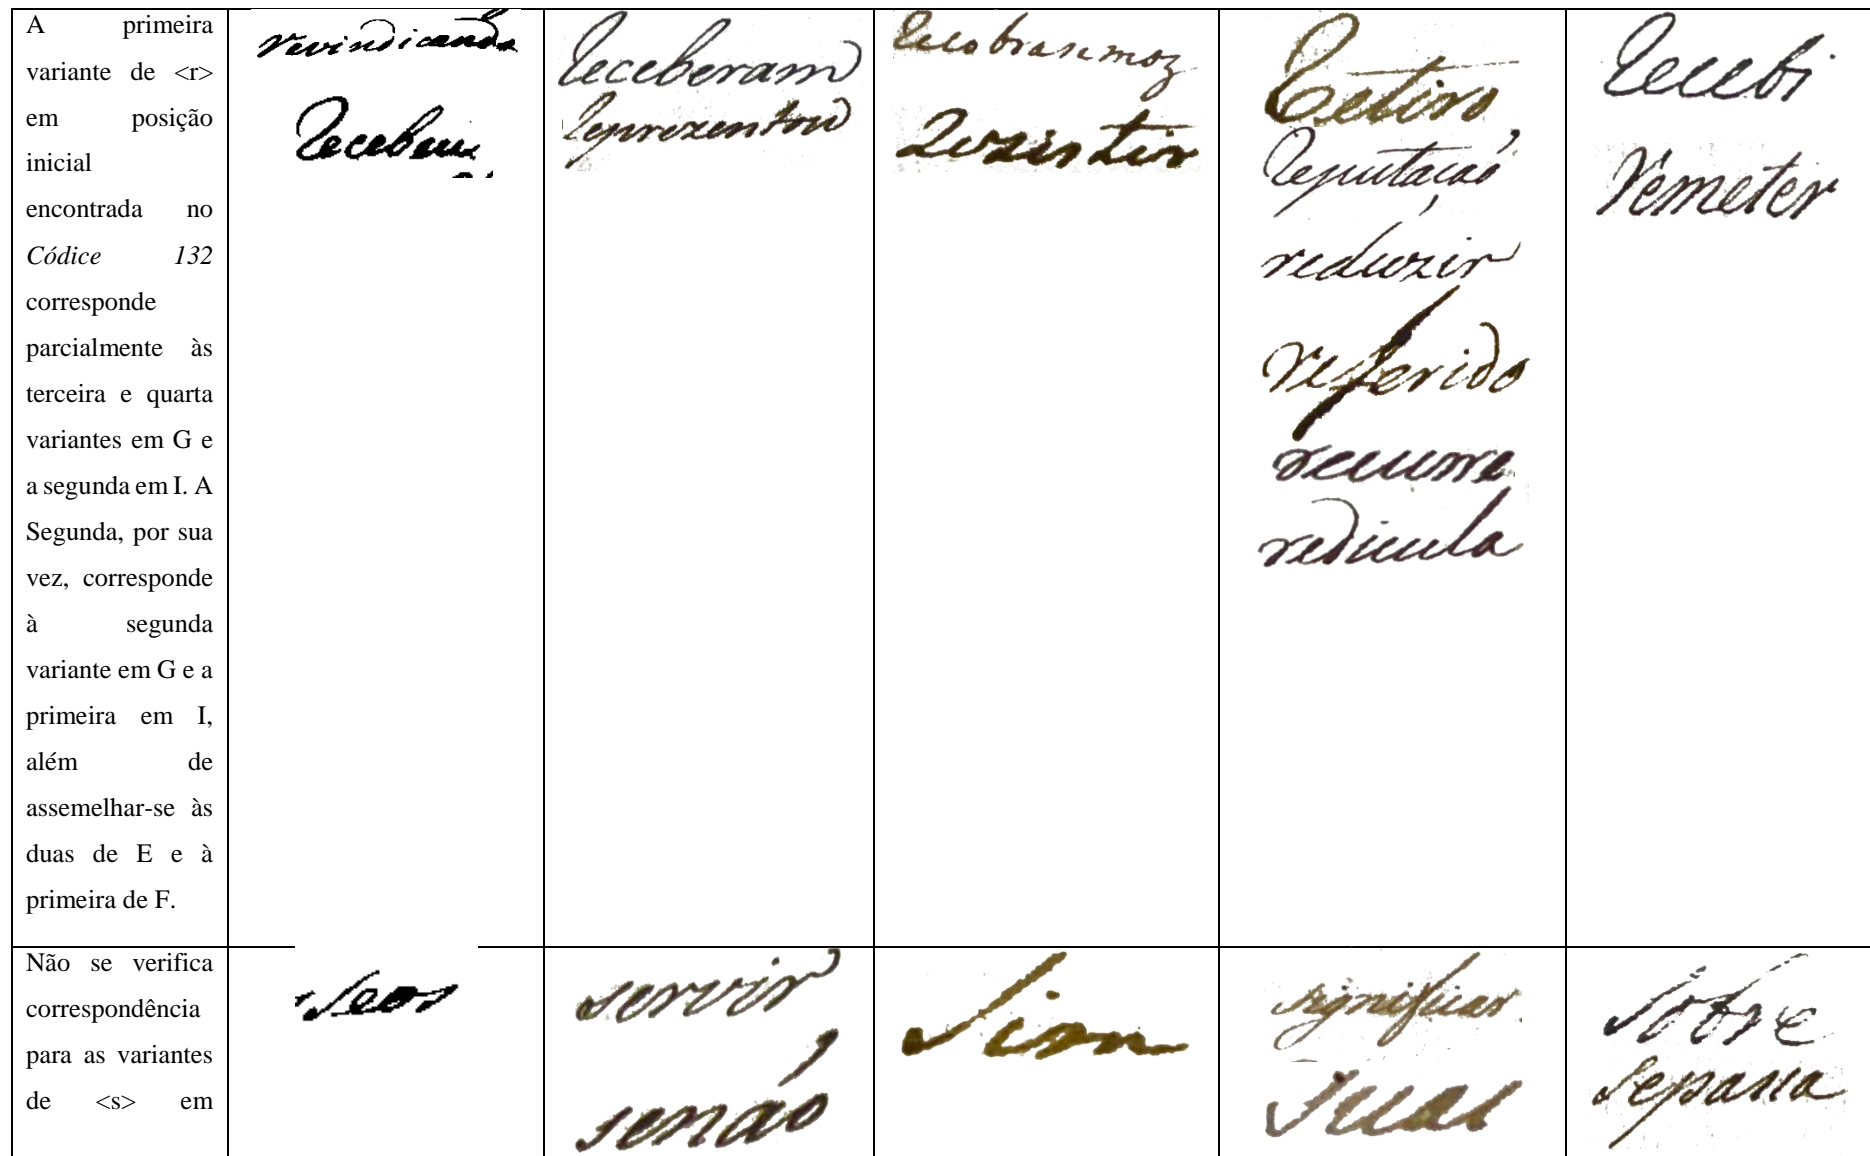 A primeira
variante de <r>
em posição
inicial
encontrada no
Códice 132
corresponde
parcialmente às
terceira e quarta
variantes em G e
a segunda em I. A
Segunda, por sua
vez, corresponde
à segunda
variante em G e a
primeira em I,
além de
assemelhar-se às
duas de E e à
primeira de F.
revindicando
Receberam
reprezentou
Rezistir
Retiro
Reputacaó
reduzir
referido
recorre
redicula
Recebi
Remeter
Não se verifica
correspondência
para as variantes
de <s> em
seos
servir
senáo
Sim
significar
suas
sobre
separa